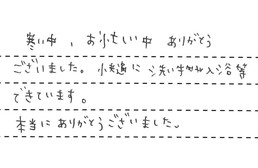 寒い中、お忙しい中 ありがとう
ございました。快適に 洗い物や入浴等
できています。
本当に ありがとうございました。